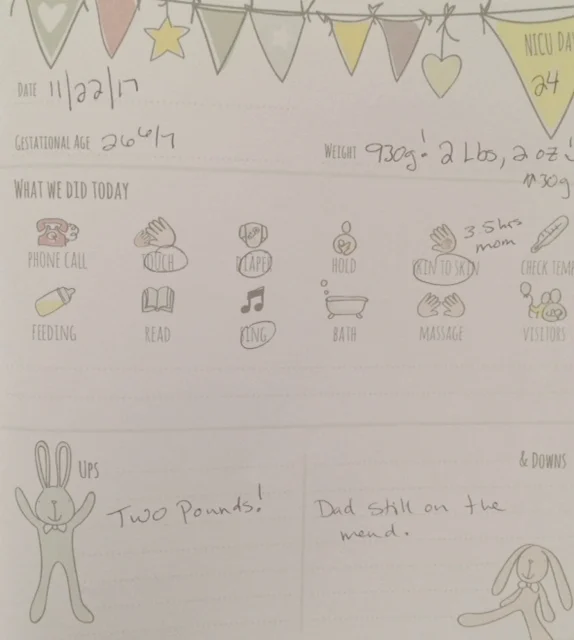 NICU DA
24
DATE 11/22/17
GESTATIONAL AGE 26 6/7
WEIGHT 930g! 2 Lbs, 2 oz!
↑30g
WHAT WE DID TODAY
3.5 hrs
mom
PHONE CALL TOUCH DIAPER HOLD SKIN TO SKIN CHECK TEMP
FEEDING READ SING BATH MASSAGE VISITORS
UPS
& DOWNS
Two Pounds!
Dad still on the
mend.